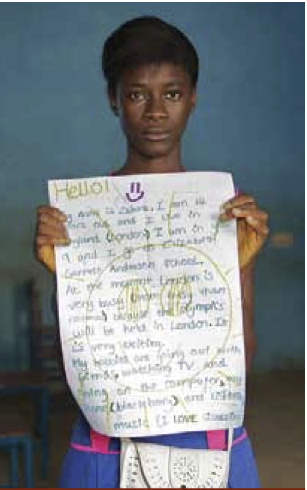 Hello!
My name is Zahra. I am 14
years old and I live in
England (London) I am in year
9 and I go to Elizabeth
Garrett Anderson School.
At the moment London is
very busy than
normal) because the Olympics
will be held in London. It
is very exciting.
My hobbies are going out with
friends, watching TV and
going on the computer, my
phone (blackberry) and listening
music (I LOVE